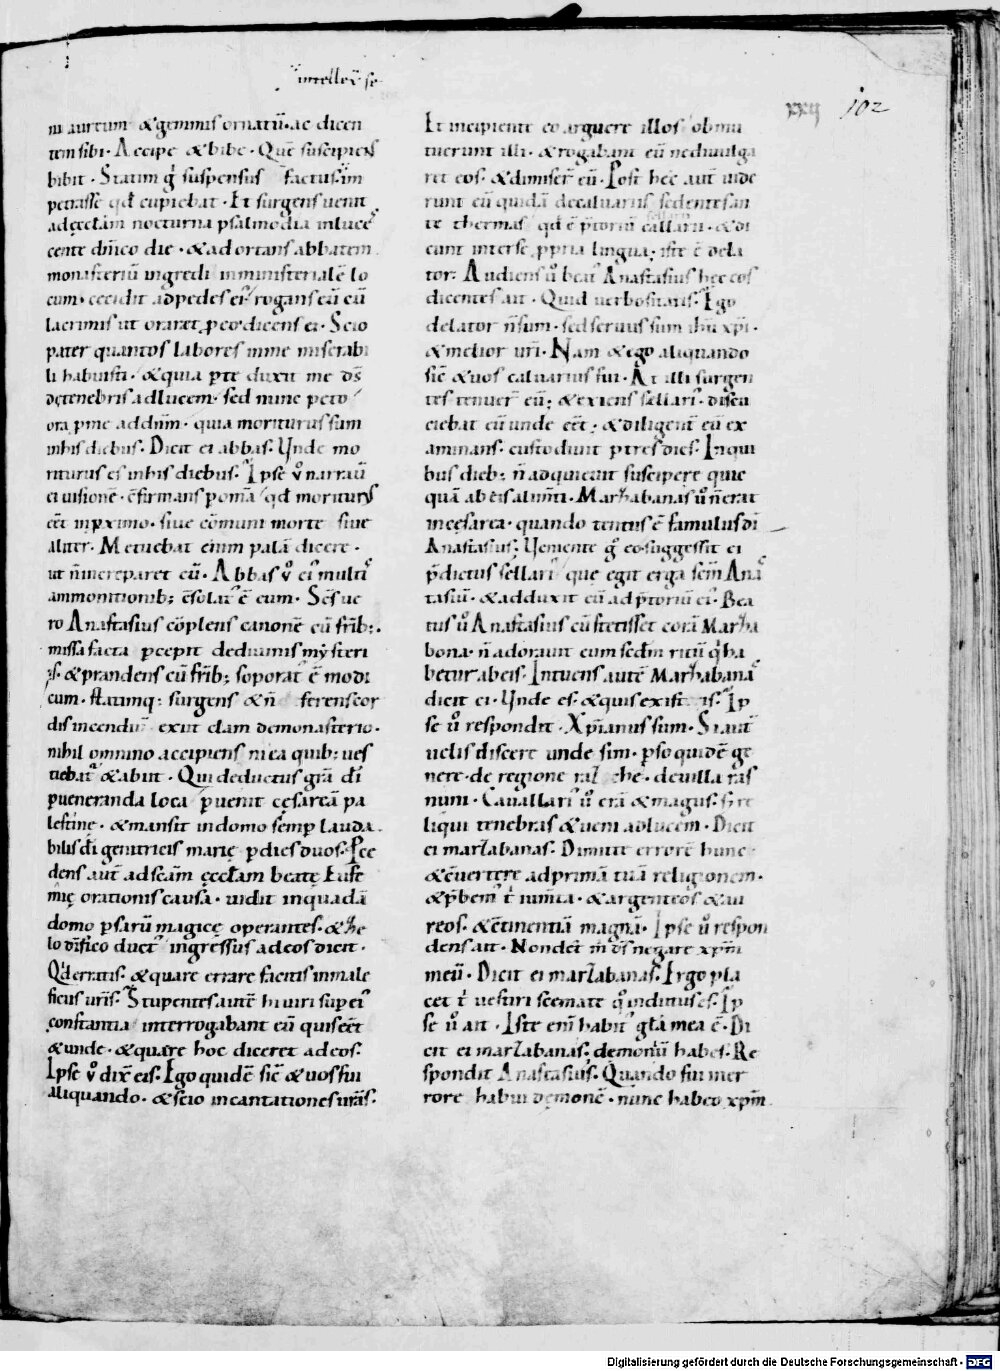 intellex̄ se
xxij 102
m aureum & gemmis ornatū. ac dicen
tem sibi. Accipe & bibe. Quē suscipiens
bibit. Statim gͥ suspensus factus. im
petrasse qd̄ cupiebat. Et surgens uenit
ad ęccłam nocturna psalmodia inluces
cente dn̄ico die. & adortans abbatem
monasteriū ingredi in ministerialē lo
cum. cecidit ad pedes ei᾿ rogans eū cū
lacrimis ut oraret ꝓ eo dicens ei. Scio
pater quantos labores in me miserabi
li habuisti. & quia ꝑ te duxit me dс̄
de tenebris ad lucem. sed nunc peto
ora ꝓ me ad dn̄m. quia moriturus sum
in his diebus. Dicit ei abbas. Unde mo
riturus es in his diebus. Ipse v̊ narrauit
ei uisionē. cōfirmans ꝓ omnia qd̄ moriturus
eēt in ꝓximo. siue cōmuni morte siue
aliter. Metuebat enim palā dicere.
ut n̄ increparet eū. Abbas v̊ ei᾿ multis
ammonitionib; cōsolat᾿ ē eum. Sc̄s ue
ro Anastasius cōplens canonē cū fr̄ib;.
missa facta ꝑcepit de diuinis mẏsteri
is. & prandens cū fr̄ib; soporat᾿ ē modi
cum. statimq; surgens & n̄ ferens cor
dis incendiū exiit clam de monasterio.
nihil omnino accipiens nι ea quib; ues
tiebat᾿ & abiit. Qui deductus gr̄a dī
ꝑ ueneranda loca ꝑuenit cęsarēa pa
lestinę. & mansit in domo semꝑ lauda
bilis dī genitricis marię ꝑ dies duos. Pce
dens aūt ad sc̄am ęccłam beatę Eufe
mię orationis causa. uidit in quadā
domo ꝑsarū magicę operantes. & ze
lo diuino duct᾿ ingressus ad eos dicit.
Qd̄ erratis. & quare errare facitis in male
ficiis ur̄is. Stupentes autē hi uiri sup ei᾿
constantia interrogabant eū quis eēt
& unde. & quare hoc diceret ad eos.
Ipse v̊ dix̄ eis. Ego quidē sic̄ & uos fui
aliquando. & scio incantationes uras̄.
Et incipiente eo arguere illos obmu
tuerunt illi. & rogabant eū ne diuulga
ret eos. & dimiser̄ eū. Post hęc aūt uide
runt eū quidā de caluariis sedentes an
te thermas qd̄ ē p̄torιū callarii. & di
cunt inter se ꝓpria lingua; iste ē dela
tor. Audiens v̊ beat᾿ Anastasius hęc eos
dicentes ait. Quid uerbositatis. Ego
delator n̄ sum. sed seruus sum ih̄u xp̄i.
& melior ur̄i. Nam & ego aliquando
sic̄ & uos caluarius fui. At illi surgen
tes tenuer̄ eū; & exiens sellari᾿. discu
ciebat eū unde eēt; & diligent̄ eū ex
aminans. custodiunt ꝑ tres dies. In qui
bus dieb; n̄ adquieuit suscipere quic
quā ab eis alim̄ti. Marzabanas v̊ n̄ erat
in cęsarea. quando tentus ē famulus dī
Anastasius. Ueniente gͥ eo suggessit ei
p̄dictus sellari᾿ que egit erga sc̄m Anas
tasiū. & adduxit eū ad p̄toriū ei᾿. Bea
tus v̊ Anastasius cū stetisset corā Marza
bona. n̄ adorauit eum sc̄dm ritū qͥ ha
betur ab eis. Intuens autē Marzabanas
dicit ei. Unde es. & quis existis. Ip
se v̊ respondit. Xp̄ianus sum. Si aūt
uelis discere unde sim. ꝑso quidē ge
nere. de regione raz che. de uilla ras
nuni. Cauallari᾿ v̊ erā & magus. & re
liqui tenebras & ueni ad lucem. Dicit
ei marzabanas. Dimitte errorē hunc
& cōuertere ad primā tuā religionem.
& p̄bem᾿ t̄ iumta. & argenteos & au
reos. & cōtinentiā magnā. Ipse v̊ respon
dens ait. Non det m̄ dс̄ negare xp̄m
meū. Dicit ei marzabanas. Ergo pla
cet t̄ uestiri scemate qͦ indutus es. Ip
se v̊ ait. Iste enī habit᾿ głā mea ē. Di
cit ei marzabanas. demoniū habes. Re
spondit Anastasius. Quando fui in er
rore habui dęmonē. nunc habeo xp̄m
Digitalisierung gefördert durch die Deutsche Forschungsgemeinschaft - DFG